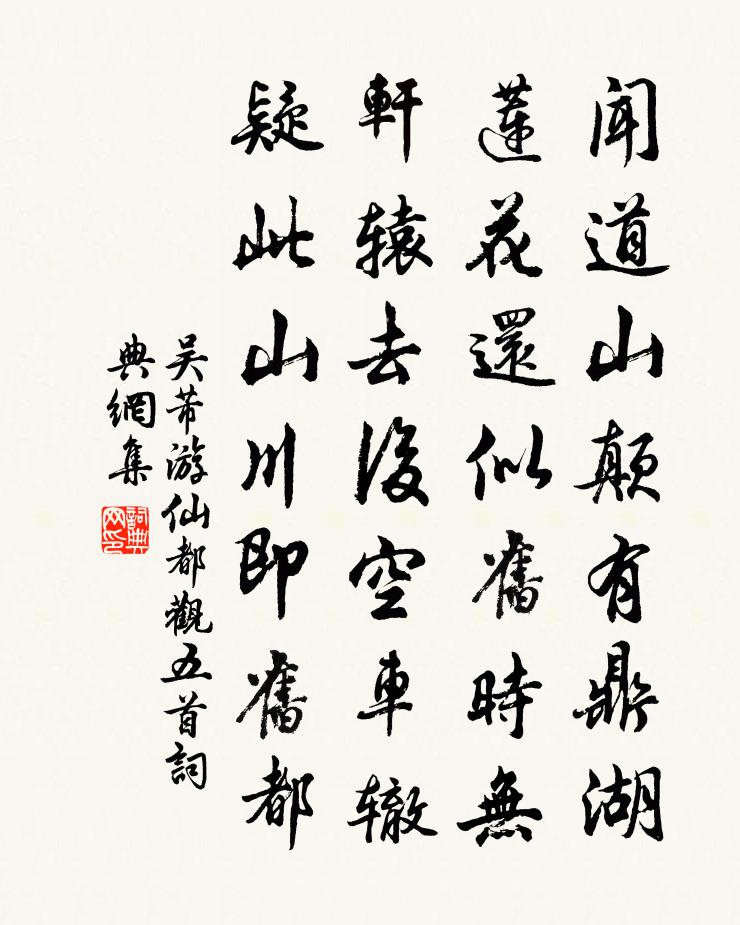 聞道山顛有鼎湖
蓮花還似舊時無
軒辕去後空車辙
疑此山川即舊都
吴芾游仙都觀五首詞
典網集
詞典
网印